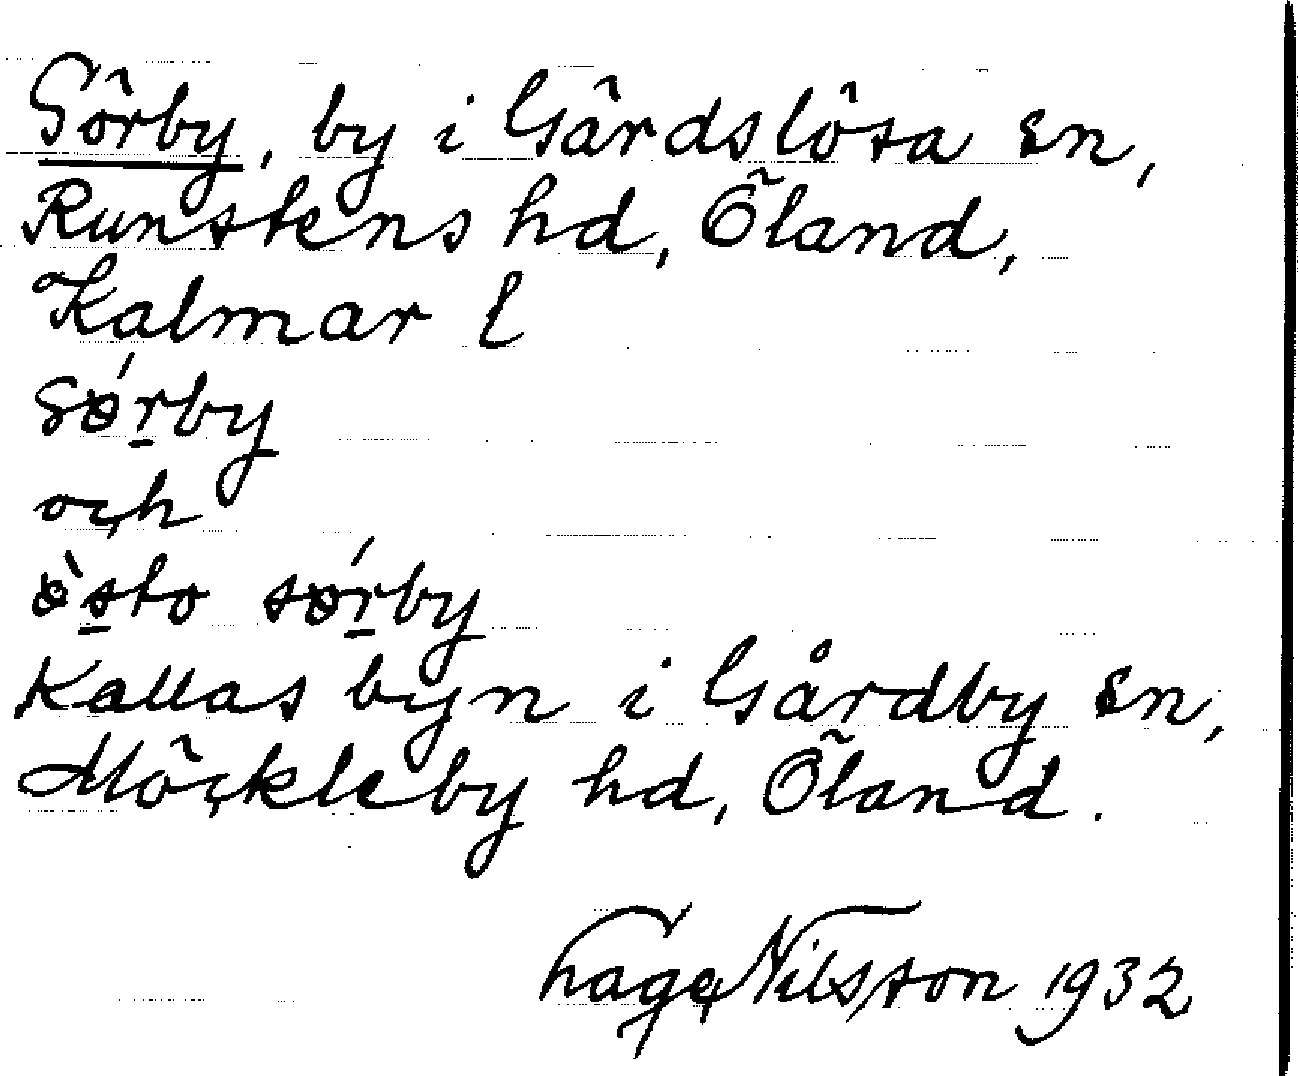 Sörby, by i Gärdslösa sn,
Runstens hd, Öland,
Kalmar l
sǿr̲by
och
ø̀s̲to sǿr̲by
Kallas byn i Gårdby sn,
Möckleby hd, Öland.
Tage Nilsson 1932